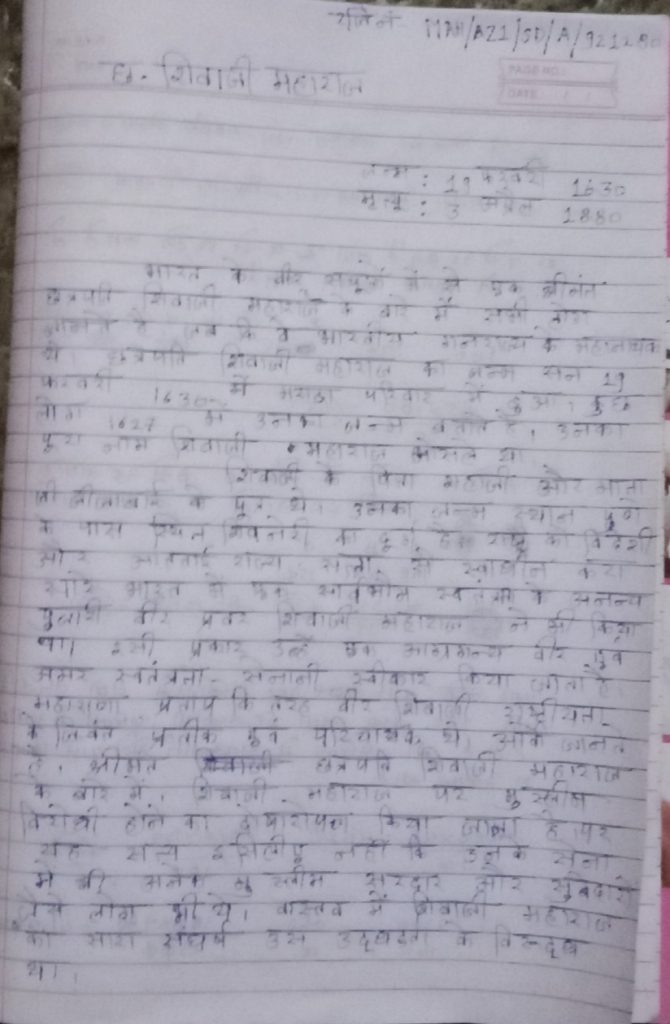 रजि नं MAH/A21/SD/A/921280
PAGE NO.
DATE / /
छ. शिवाजी महाराज
जन्म : 19 फरवरी 1630
मृत्यू : 3 अप्रैल 1880
भारत के वीर सपूतों में से एक श्रीमंत
छत्रपति शिवाजी महाराज के बारे में सभी लोग
जानते है जब कि वे भारतीय गनराज्य के महानायक
थे। छत्रपति शिवाजी महाराज का जन्म सन 19
फरवरी 1630 में मराठा परिवार में हुआ, कुछ
लोग 1627 में उनका जन्म बताते है, उनका
पूरा नाम शिवाजी महाराज भोसले था
शिवाजी के पिता शहाजी और माता
जी जीजाबाई के पुत्र थे। उनका जन्म स्थान पुणे
के पास स्थित शिवनेरी का दुर्ग है राष्ट्र को विदेशी
और आतताई राज्य सत्ता से स्वाधीन करा
सारे भारत में एक सार्वभौम स्वतंत्र के अनन्य
पुजारी वीर प्रवर शिवाजी महाराज ने भी किया
था। इसी प्रकार उन्हें एक अग्रगन्य वीर एवं
अमर स्वतंत्रता सेनानी स्वीकार किया जाता है
महाराणा प्रताप कि तरह वीर शिवाजी राष्ट्रीयता
के जिवंत प्रतीक एवं परिचायक थे, आवे जानते
है, श्रीमंत छत्रपति शिवाजी महाराज
के बारे में, शिवाजी महाराज पर मुस्लीम
विरोधी होने का दोषारोपण किया जाता है पर
यह सत्य इसिलीए नहीं कि उनके सेना
में भी अनेक मुस्लीम सरदार और सुबेदारो
जैसे लोग भी थे। वास्तव में शिवाजी महाराज
का सारा संघर्ष उस के विरूद्ध
था।